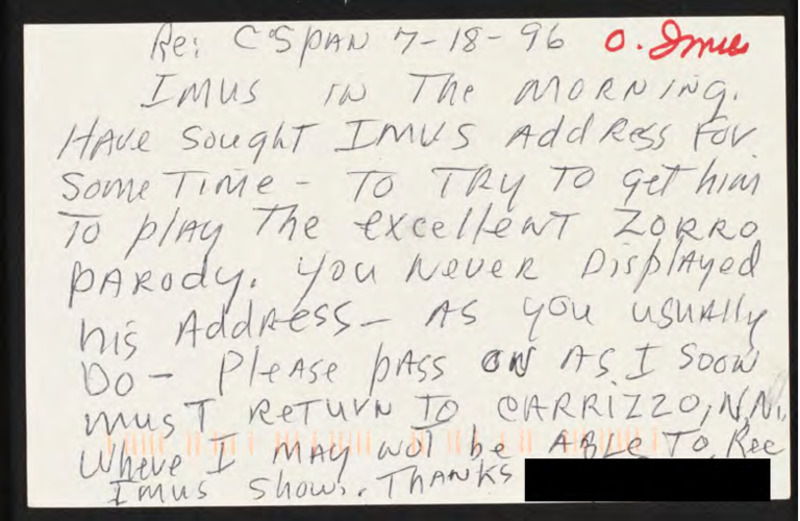 Re: C'SPAN 7-18-96 O. Imus
IMUS IN The MORNING.
HAve SOught IMUS AddRess For
Some Time - TO TRY TO get him
TO plAy The excelleNT ZORRO
pARody. you Never DisplAyed
his AddRess - AS you usuAlly
Do - PleAse pAss ON AS I Soon
must ReTURN TO CARRIZZO, N.
Where I mAy NOT be ABLe TO Rec
Imus Show. THANKS